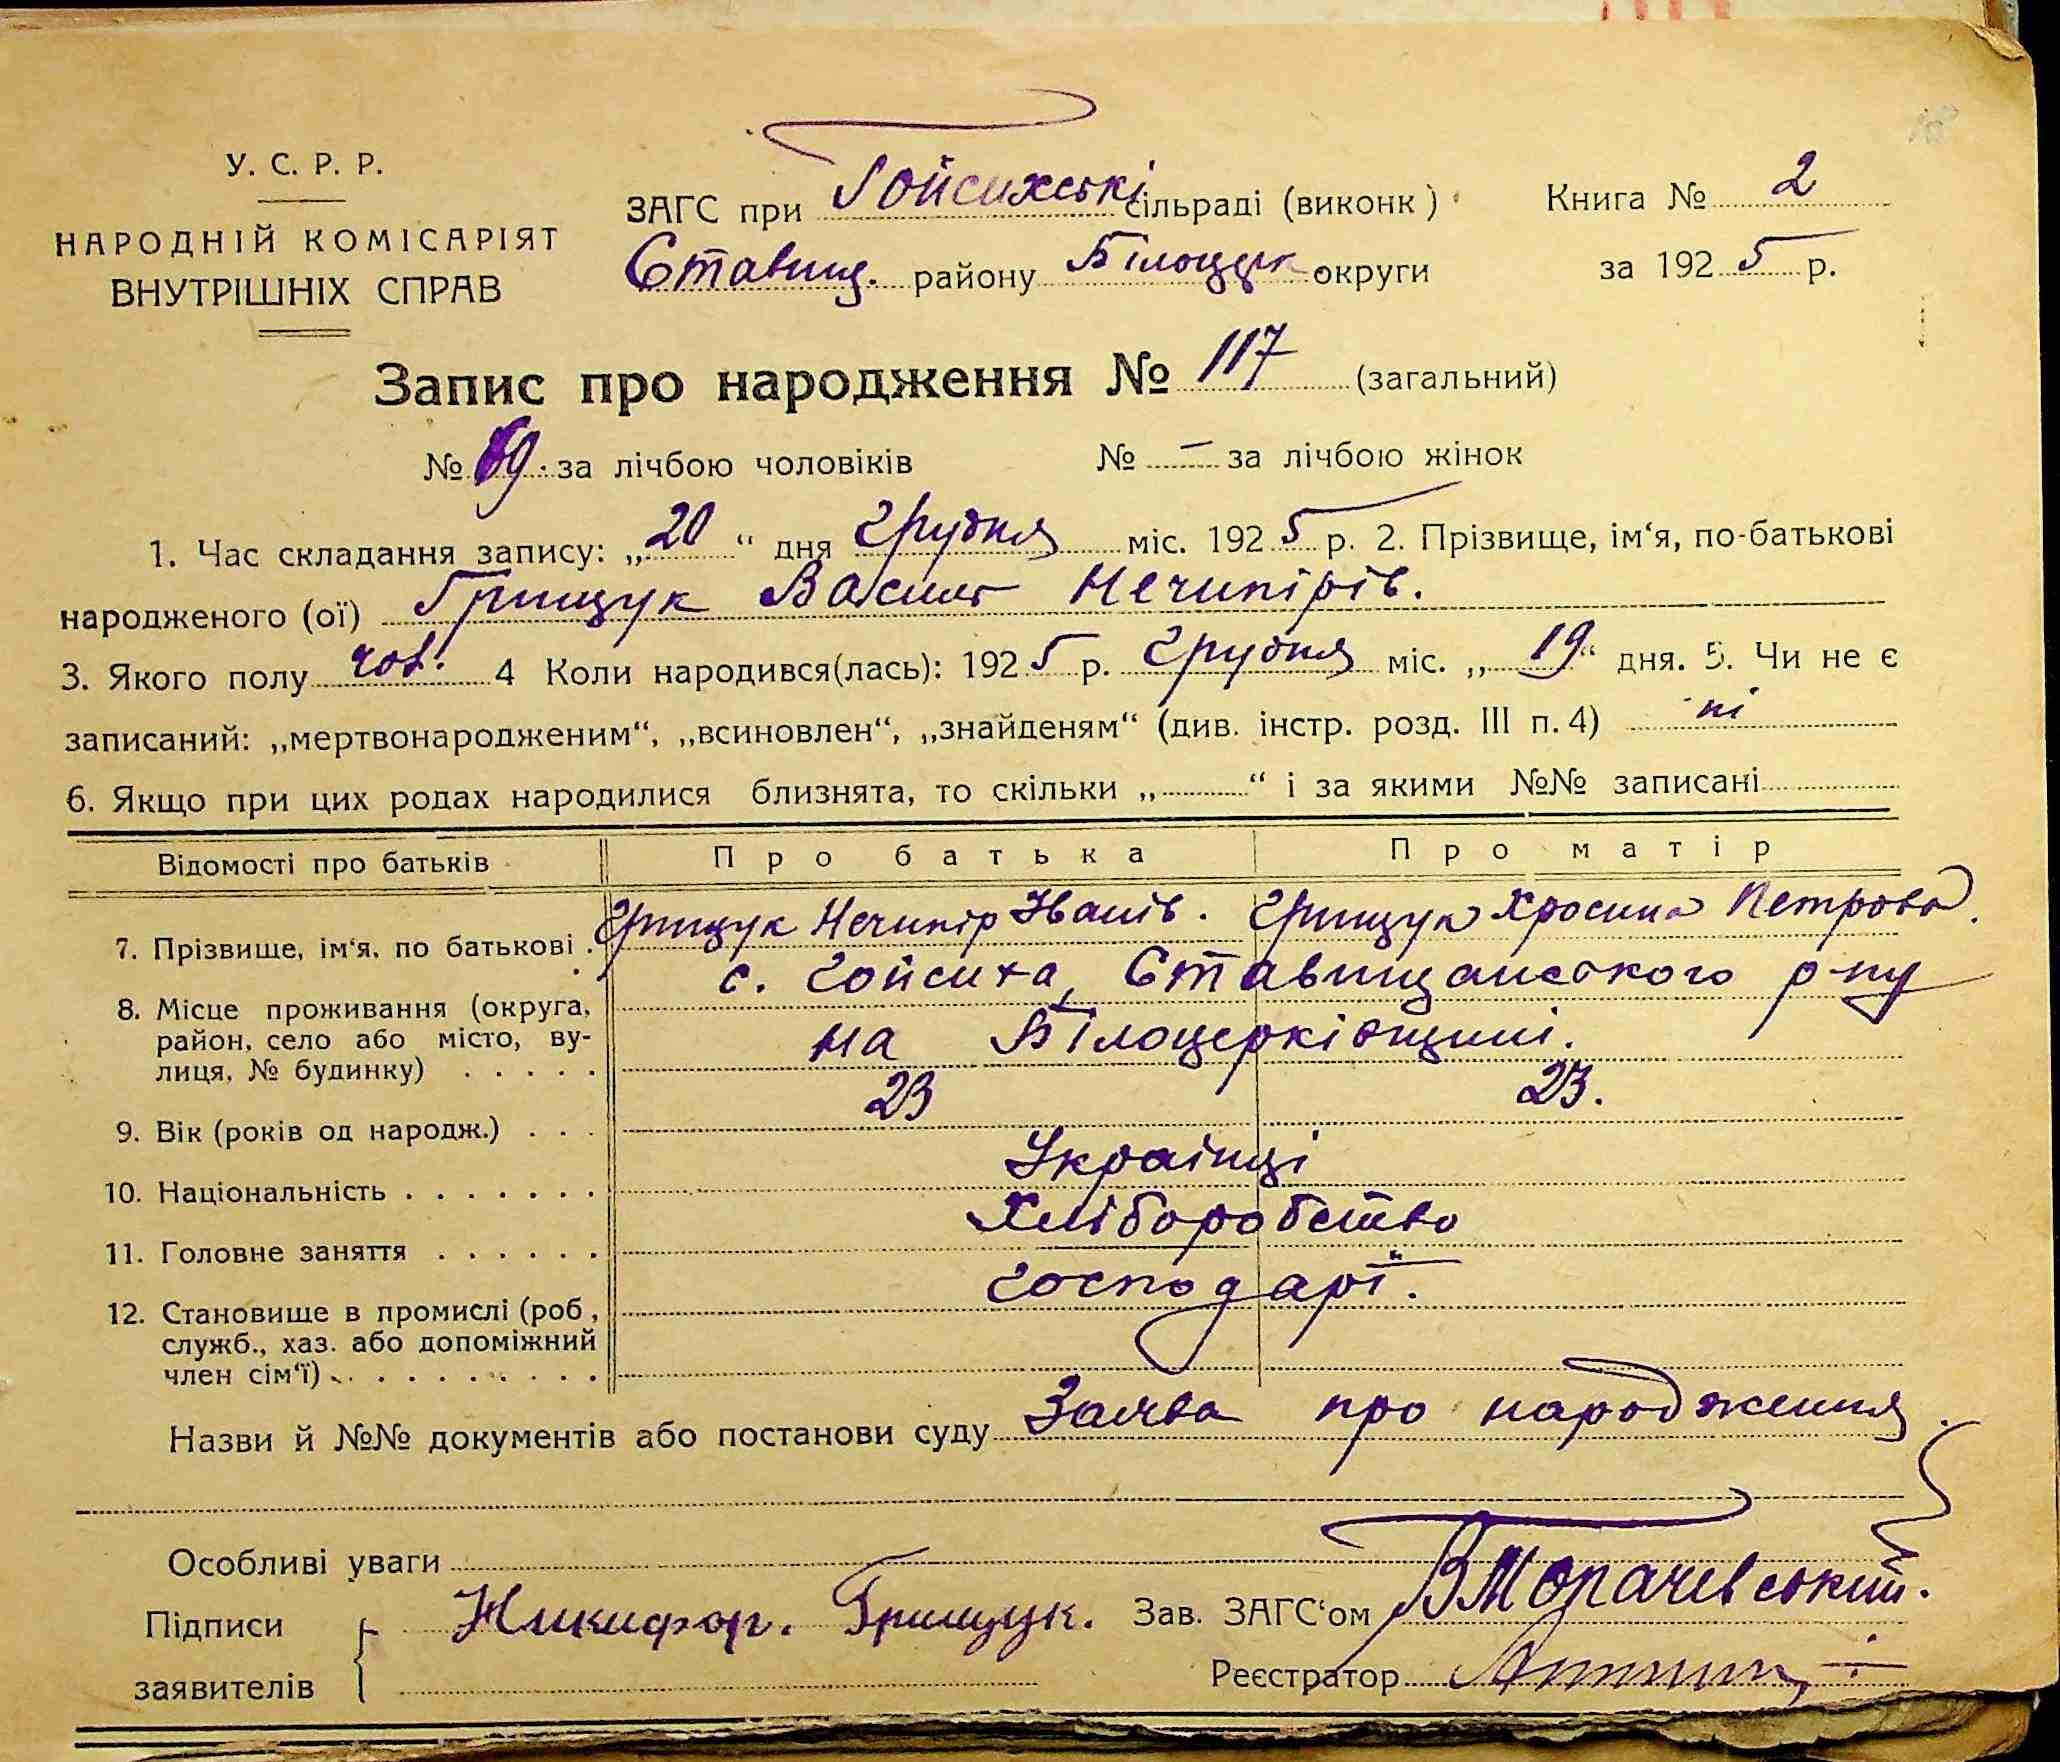 У. С. Р. Р.
НАРОДНІЙ КОМІСАРІЯТ
ВНУТРІШНІХ СПРАВ
ЗАГС при Гойсихські сільраді (виконк)
Ставищ. району Білоцерк округи
Книга № 2
за 1925 р.
Запис про народження № 117 (загальний)
№ 69. за лічбою чоловіків № — за лічбою жінок
1. Час складання запису: „20“ дня Грудня міс. 1925 р. 2. Прізвище, ім‘я, по-батькові
народженого (ої) Грищук Василь Нечипірів.
3. Якого полу чол. 4 Коли народився(лась): 1925 р. Грудня міс. „19“ дня. 5. Чи не є
записаний: „мертвонародженим“, „всиновлен“, „знайденям“ (див. інстр. розд. III п. 4) ні
6. Якщо при цих родах народилися близнята, то скільки „ “ і за якими №№ записані
Відомості про батьків Про батька Про матір
7. Прізвище, ім‘я, по батькові Грищук Нечипір Іванів. Грищук Хросина Петрова.
8. Місце проживання (округа, район, село або місто, вулиця, № будинку) с. Гойсиха, Ставищанського р-ну
на Білоцерківщині.
9. Вік (років од народж.) 23 23.
10. Національність Українці
11. Головне заняття Хліборобство
12. Становище в промислі (роб, служб., хаз. або допоміжний член сім‘ї) Господарі.
Назви й №№ документів або постанови суду Заява про народження.
Особливі уваги
Підписи заявителів Никифор. Грищук.
Зав. ЗАГС‘ом
Реєстратор